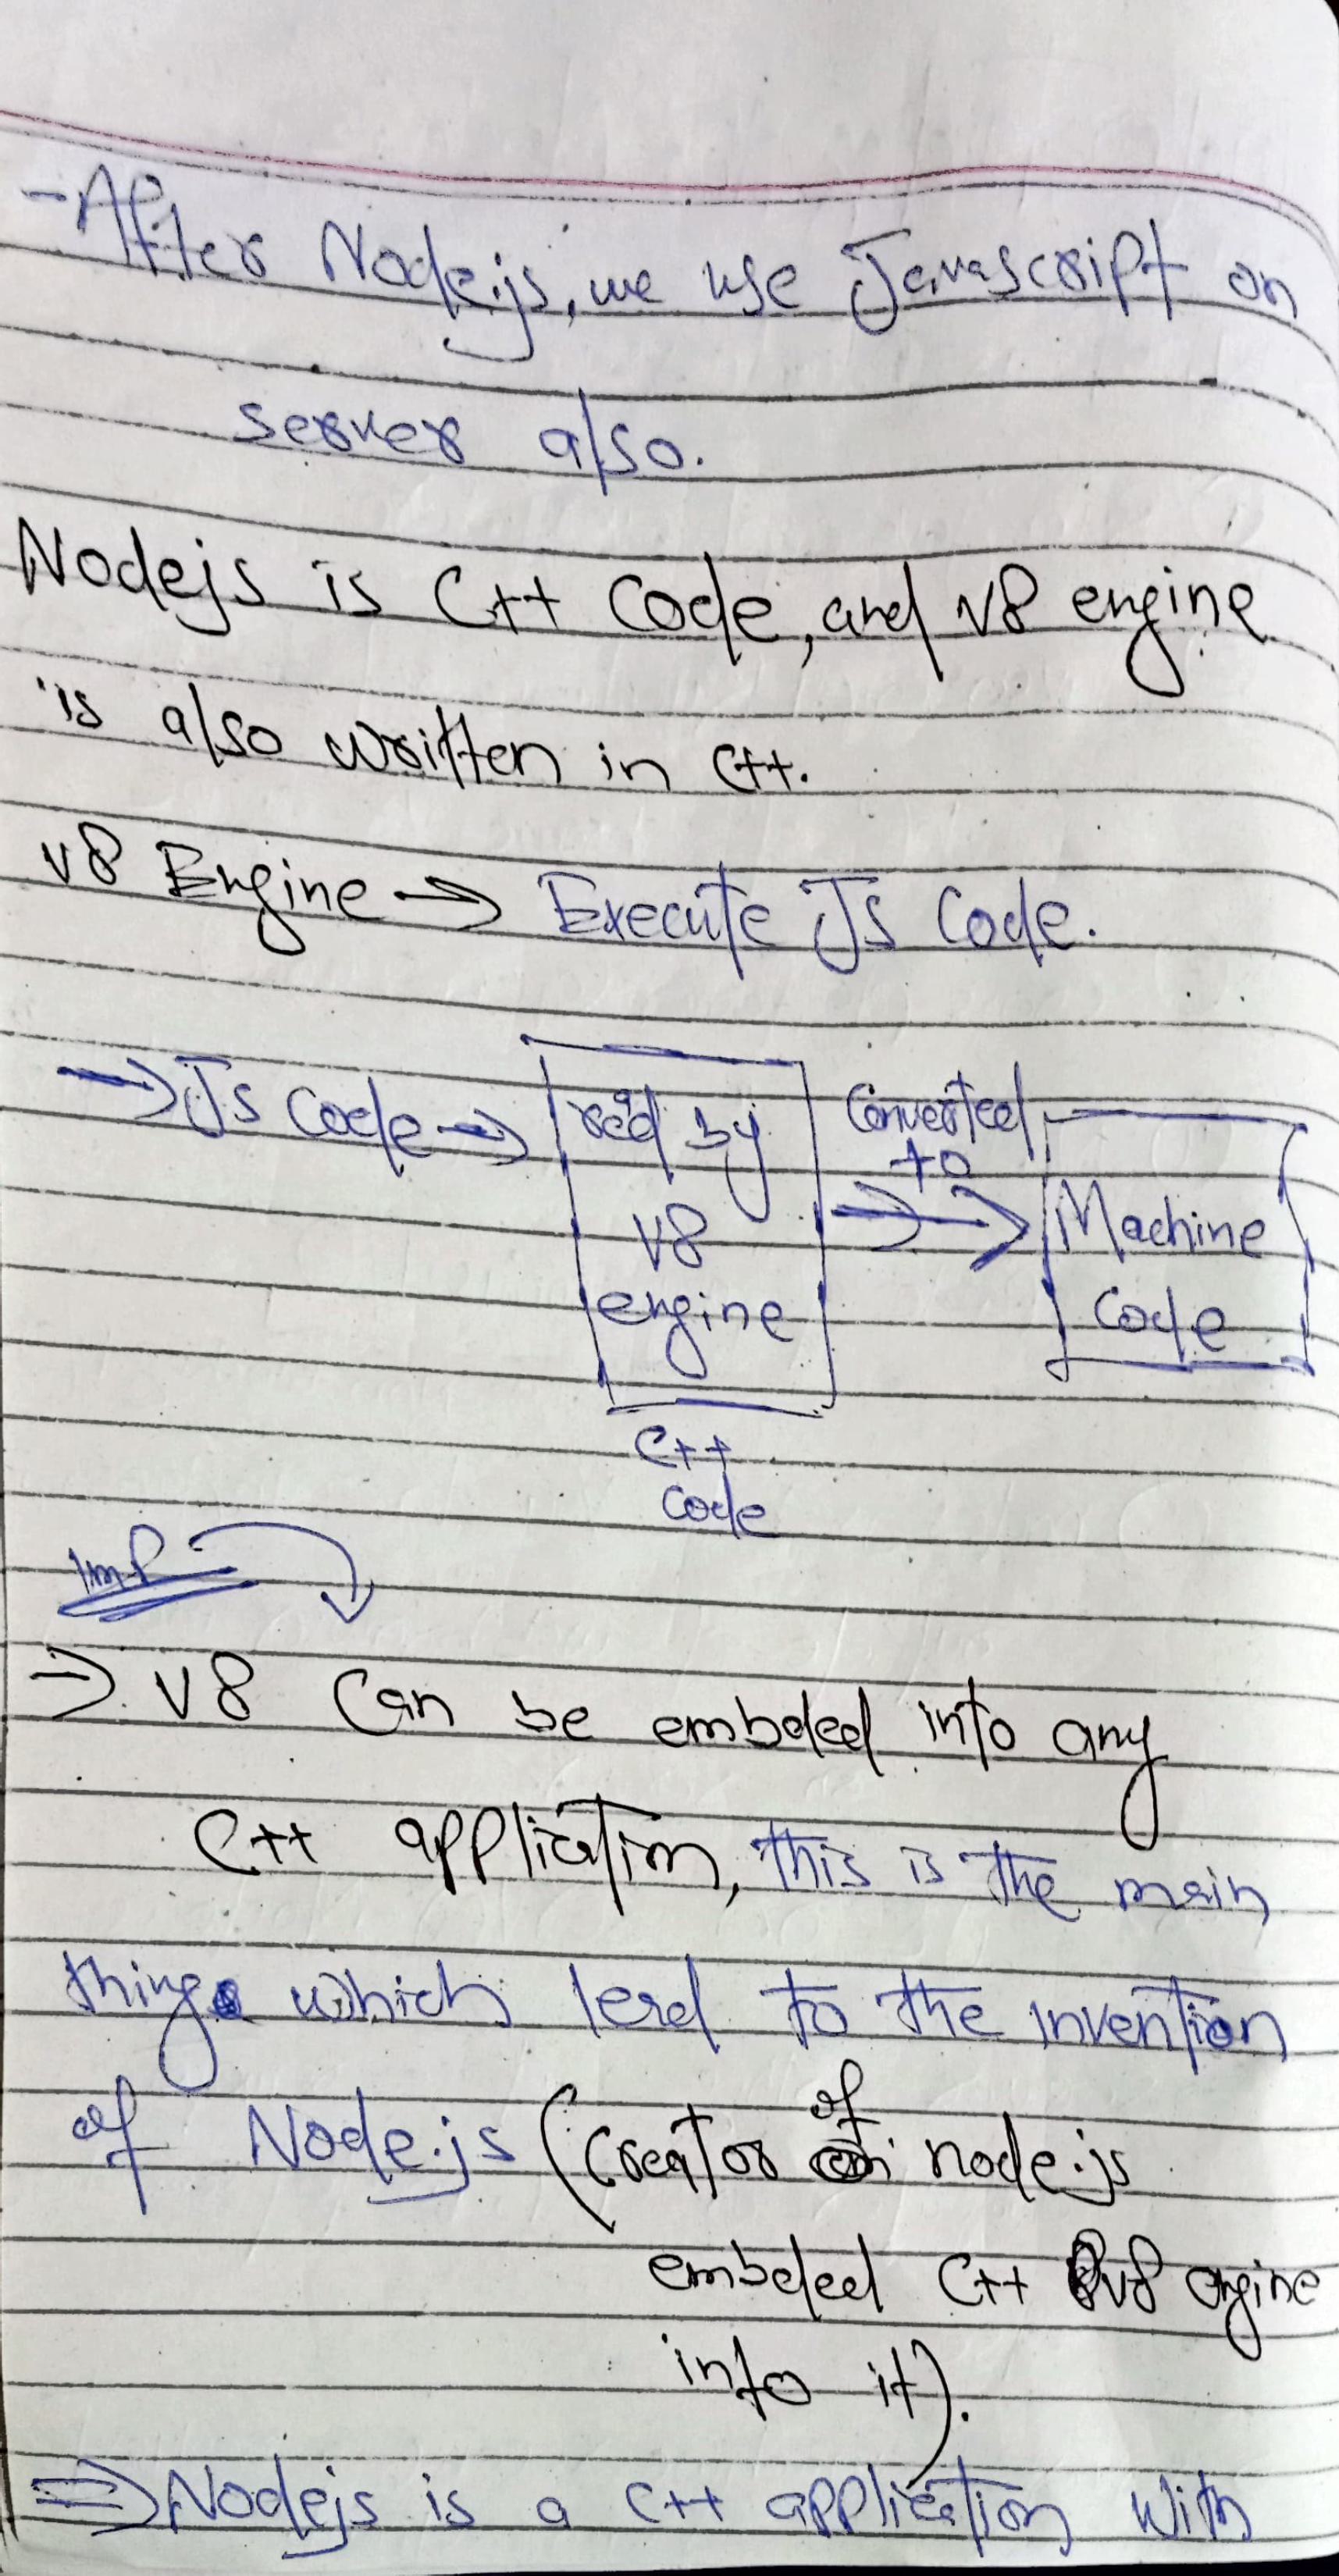 - After Node.js, we use Javascript on
server also.
Nodejs is C++ Code, and V8 engine
is also written in C++.
V8 Engine → Execute JS Code.
→ JS Code → red by V8 engine
Converted to → Machine Code
C++ Code
Imp
⇒ V8 Can be embded into any
C++ application, this is the main
thing which lead to the invention
of Node.js (Creator of node.js
embded C++ V8 engine
into it).
⇒ Nodejs is a C++ application with